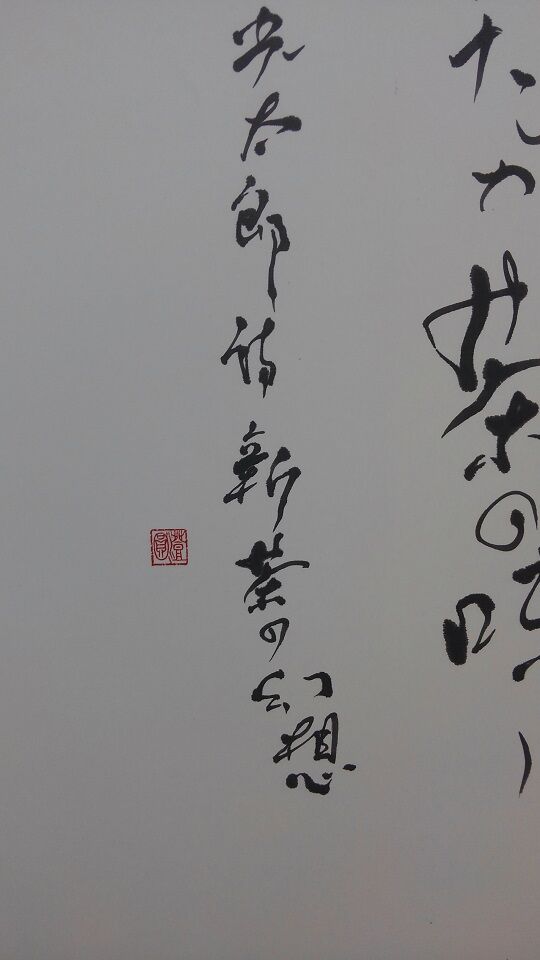 たか茶の味
光太郎詩新茶の幻想